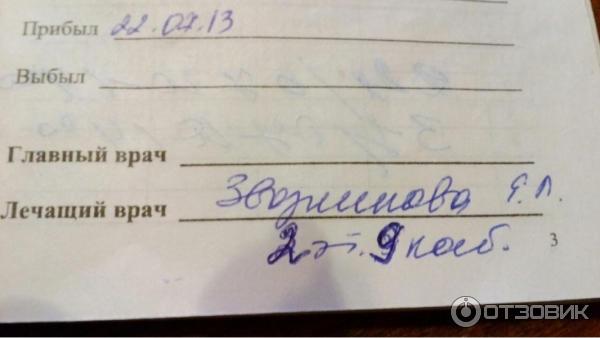 Прибыл 22.07.13
Выбыл
Главный врач
Лечащий врач Е.Л.
2 эт. 9 каб.
3
ОТЗОВИК